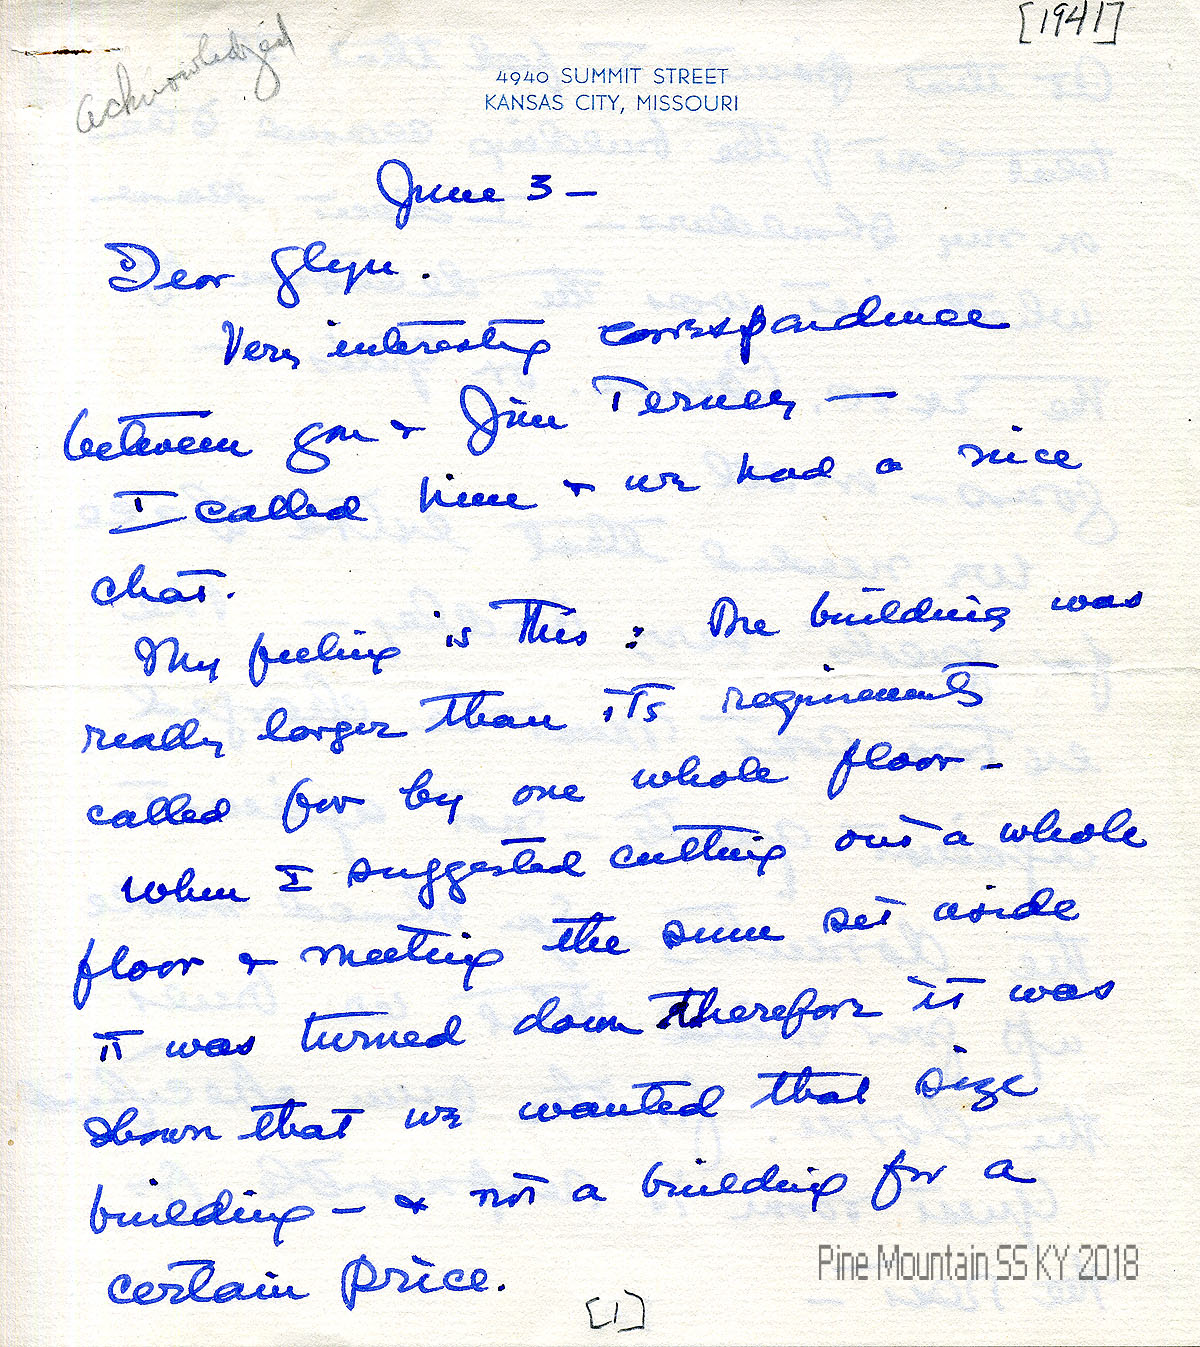 [1941]
acknowledged
4940 SUMMIT STREET
KANSAS CITY, MISSOURI
June 3 –
Dear Glyn.
Very interesting correspondence
between you & Jim Terney —
I called him & we had a nice
chat.
My feeling is this : The building was
really larger than its requirements
called for by one whole floor –
when I suggested cutting out a whole
floor & meeting the sum set aside
it was turned down therefore it was
shown that we wanted that size
building – & not a building for a
certain price.
[1]
Pine Mountain SS KY 2018